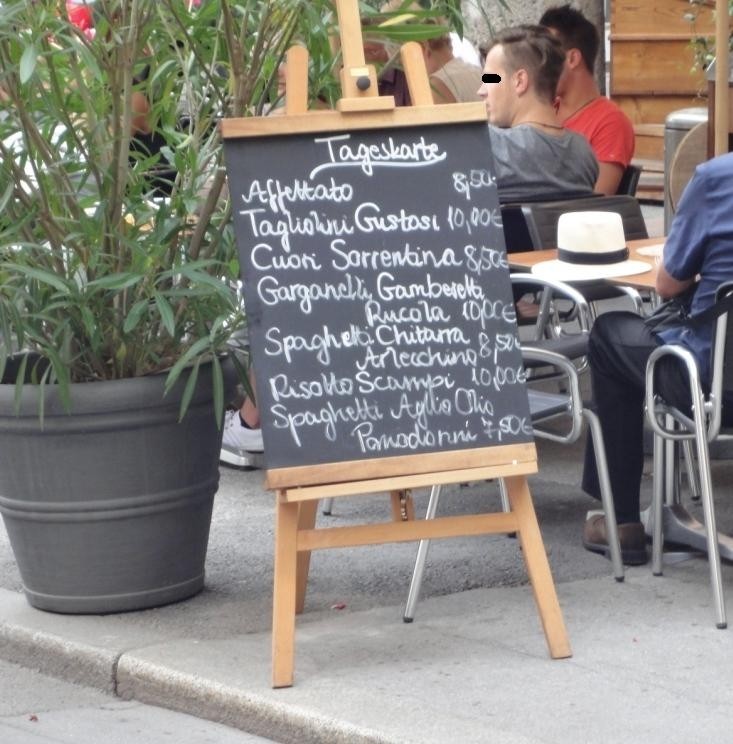 Tageskarte
Affettato 8,50.
Tagliolini Gustosi 10,00€
Cuori Sorrentina 8,50€
Garganelli Gamberetti
Rucola 10,00€
Spaghetti Chitarra
Arlecchino 8,50
Risotto Scampi 10,00€
Spaghetti Aglio Olio
Pomodorini 7,50€